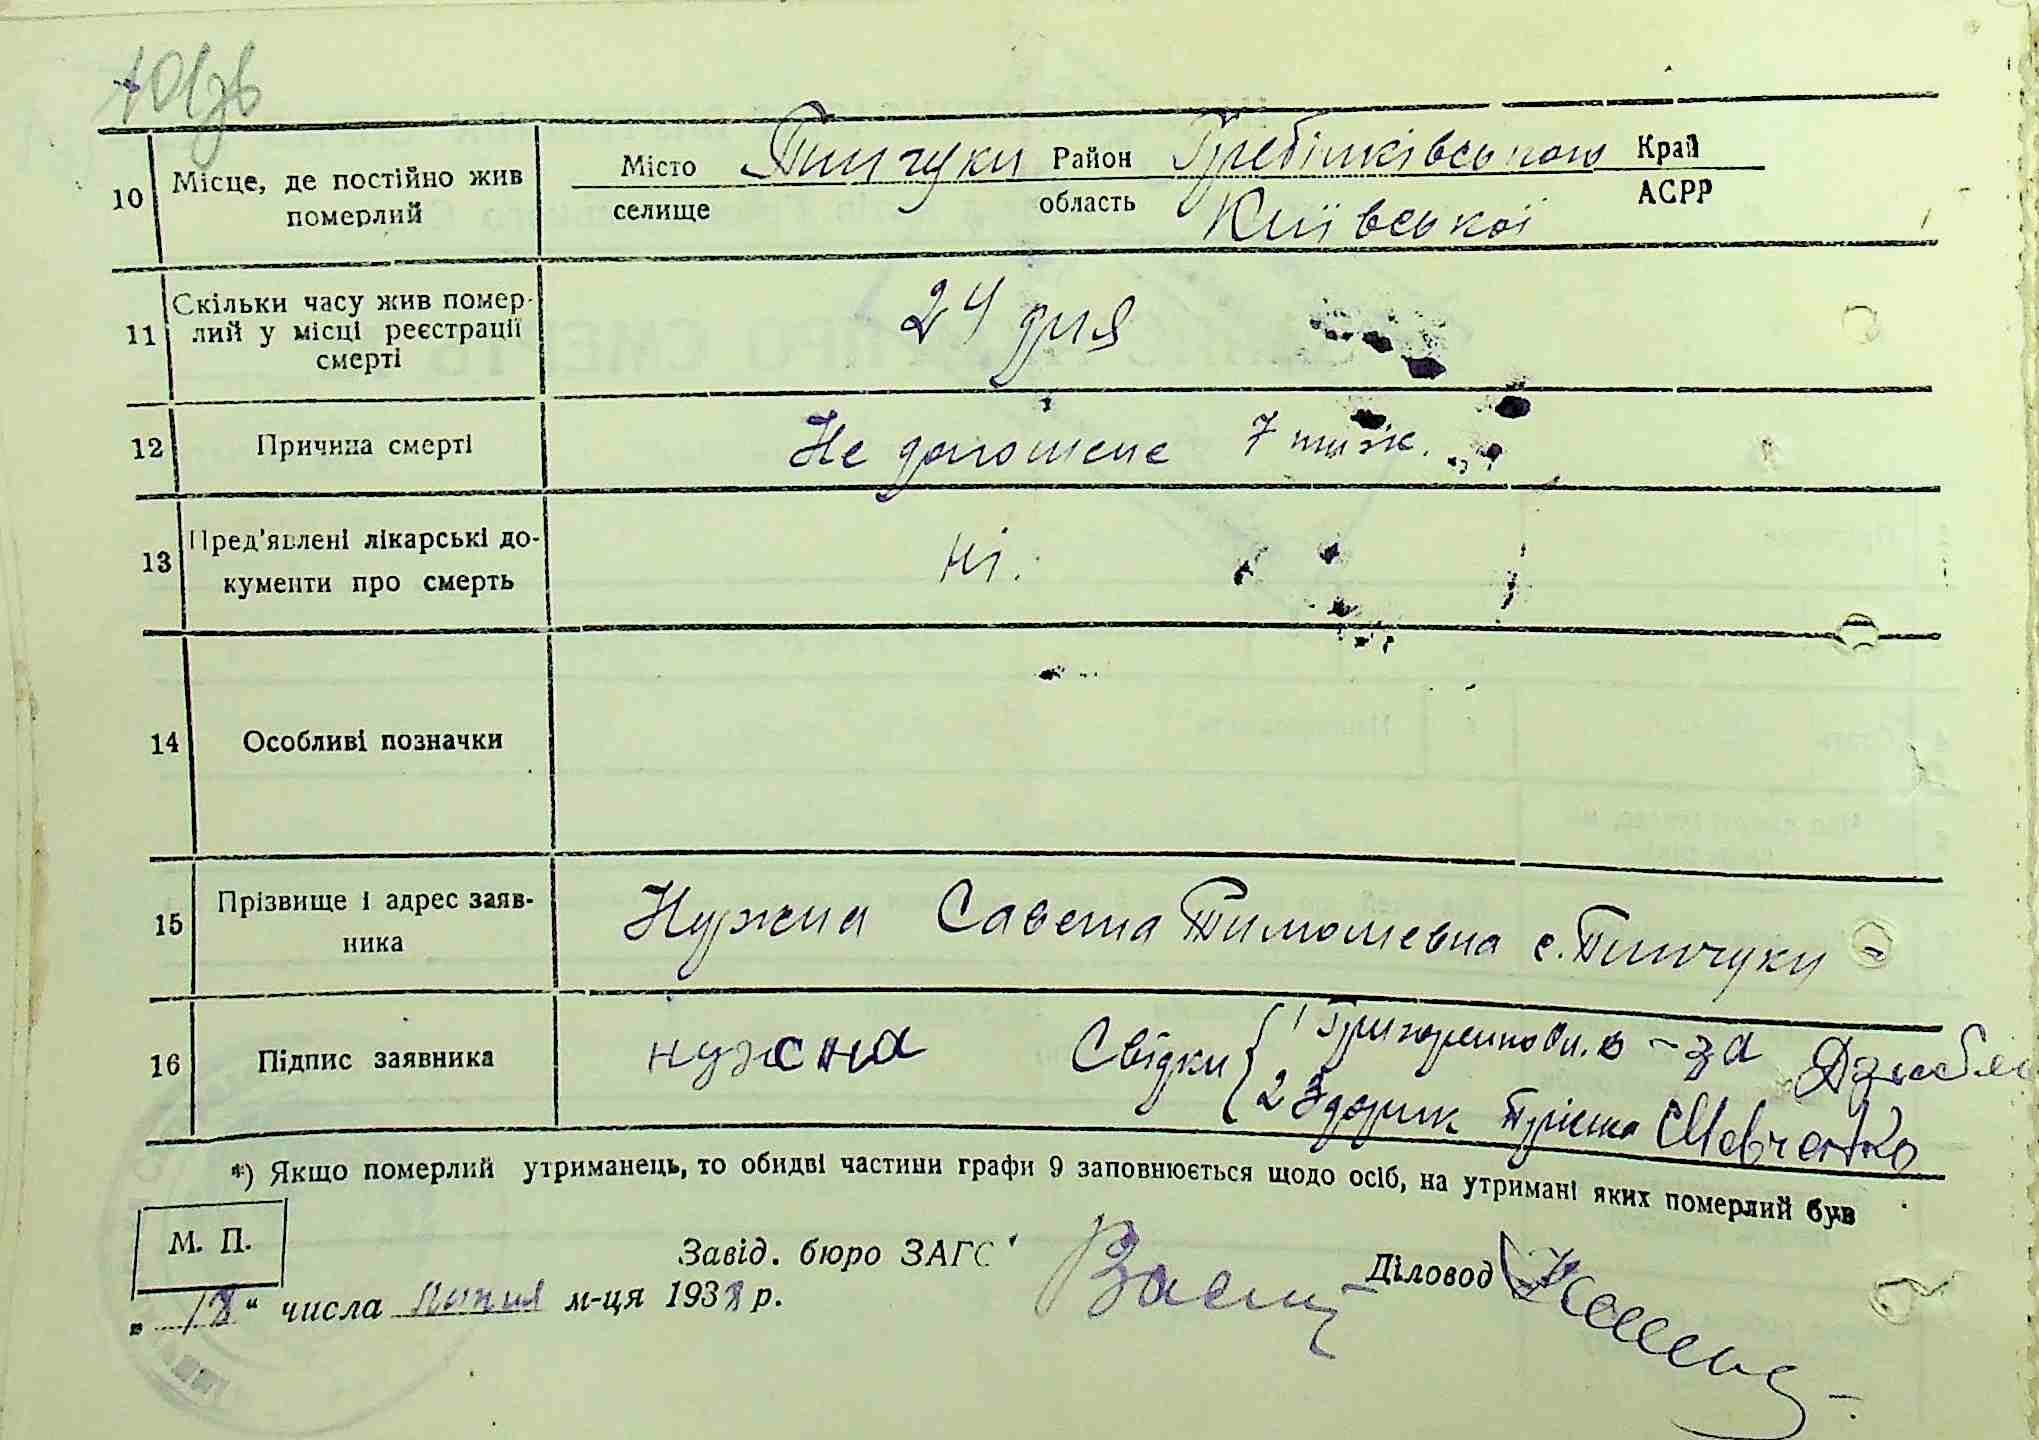 10зв
10 Місце, де постійно жив померлий
Місто Пинчуки Район Гребінківського Край
селище область Київської АСРР
11 Скільки часу жив помер-
лий у місці реєстрації
смерті
24 дня
12 Причина смерті Не доношене 7 тиж.
13 Пред'явлені лікарські до-
кументи про смерть
ні.
14 Особливі позначки
15 Прізвище і адрес заяв-
ника
Нужна Савета Тимофіевна с. Пинчуки
16 Підпис заявника нужсна Свідки 1 за Дзюбла
2 Здорик Пріська Шевченко
*) Якщо померлий утриманець, то обидві частини графи 9 заповнюється щодо осіб, на утримані яких померлий був
М. П.
Завід. бюро ЗАГС Діловод
„ 18 “ числа липня м-ця 1938 р.